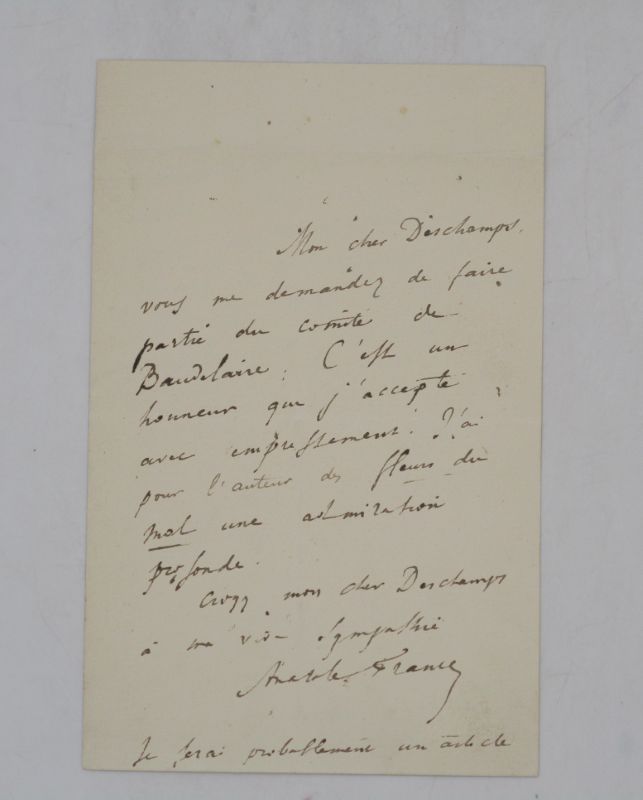 Mon cher Deschamps,
vous me demandez de faire
partie du comité de
Baudelaire. C'est un
honneur que j'accepte
avec empressement. J'ai
pour l'auteur des fleurs du
mal une admiration
profonde.
Croyez mon cher Deschamps
à ma vive sympathie
Anatole France
Je ferai probablement un article